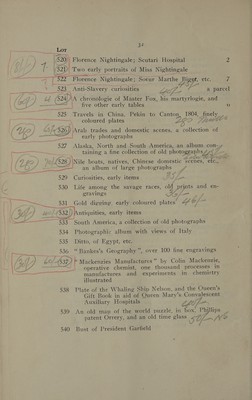 32
Lot
520 Florence Nightingale; Scutari Hospital 2
521 Two early portraits of Miss Nightingale
522 Florence Nightingale; Soeur Marthe etc. 7
523 Anti-Slavery curiosities a parcel
524 A chronologie of Master Fox, his martyrlogie, and
five other early tables
525 Travels in China, Pekin to Canton, 1804, finely
coloured plates
526 Arab trades and domestic scenes, a collection of
early photographs
527 Alaska, North and South America, an album con-
taining a fine collection of old photographs
528 Nile boats, natives, Chinese domestic scenes, etc.,
an album of large photographs
529 Curiosities, early items
530 Life among the savage races, old prints and en-
gravings
531 Gold digging: early coloured plates
532 Antiquities, early items
533 South America, a collection of old photographs
534 Photographic album with views of Italy
535 Ditto, of Egypt, etc.
536 "Rankin's Geography", over 100 fine engravings
537 "Mackenzies Manufactures" by Colin Mackenzie,
operative chemist, one thousand processes in
manufactures and experiments in chemistry
illustrated
538 Plate of the Whaling Ship Nelson, and the Queen's
Gift Book in aid of Queen Mary's Convalescent
Auxiliary Hospitals
539 An old map of the world puzzle, in box, Phillips
patent Orrery, and an old time glass
540 Bust of President Garfield